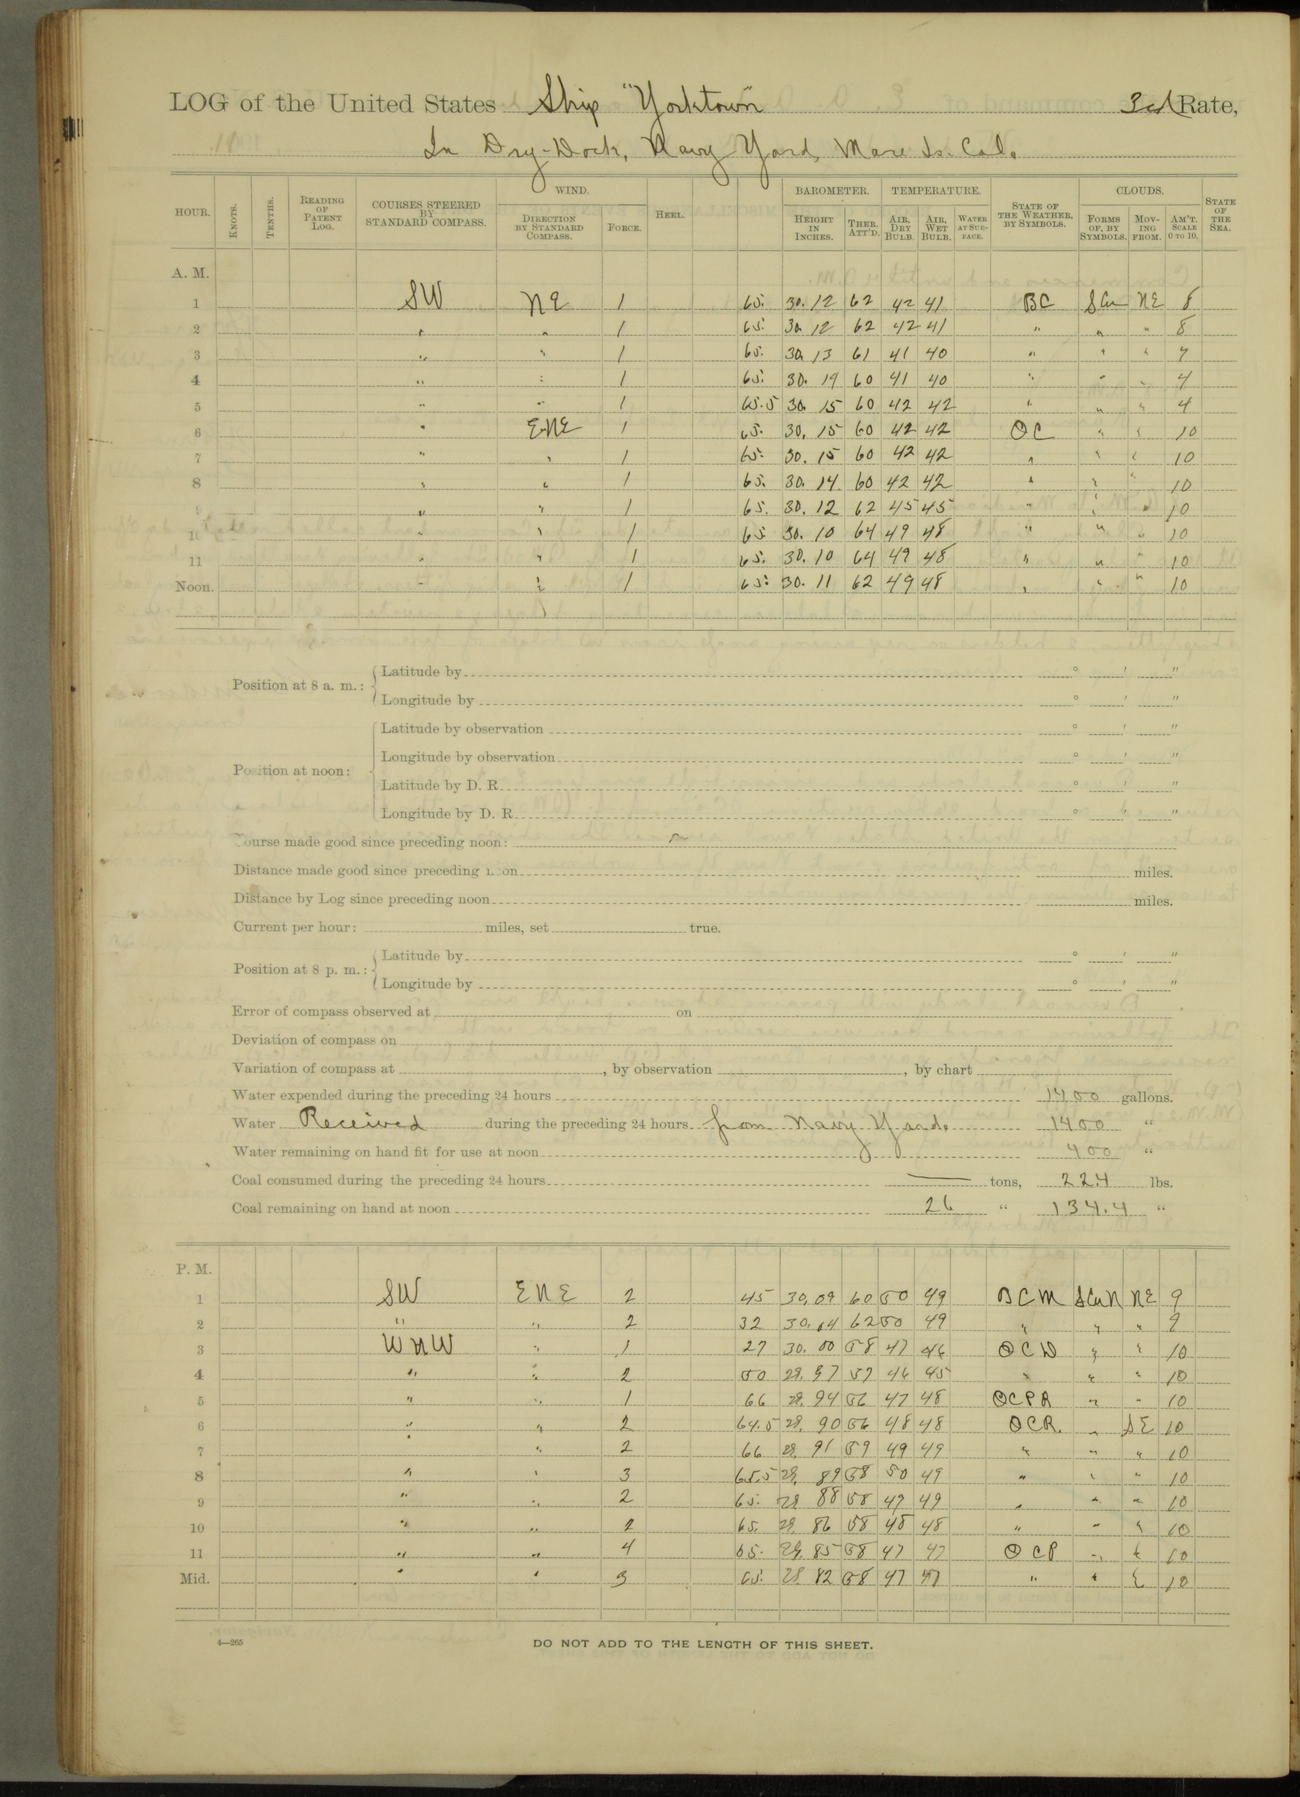 LOG of the United States Ship "Yorktown" 3rd Rate,
In Dry-Dock, Navy Yard, Mare Is. Cal.
HOUR. KNOTS. TENTHS. READING OF PATENT LOG. COURSES STEERED BY STANDARD COMPASS. WIND. DIRECTION BY STANDARD COMPASS. FORCE. HEEL. BAROMETER. HEIGHT IN INCHES. THER. ATT'D. TEMPERATURE. AIR, DRY BULB. AIR, WET BULB. WATER AT SURFACE. STATE OF THE WEATHER, BY SYMBOLS. CLOUDS. FORMS OF, BY SYMBOLS. MOVING FROM. AM'T. SCALE 0 TO 10. STATE OF THE SEA.
A. M.
1 SW NE 1 65. 30.12 62 42 41 BC SCu NE 8
2 " " 1 65. 30 12 62 42 41 " " " 8
3 " " 1 65. 30 13 61 41 40 " " " 7
4 " " 1 65. 30. 14 60 41 40 " " " 4
5 " " 1 65.5 30 15 60 42 42 " " " 4
6 " ENE 1 65. 30. 15 60 42 42 OC " " 10
7 " " 1 65. 30. 15 60 42 42 " " " 10
8 " " 1 65. 30. 14 60 42 42 " " " 10
9 " " 1 65. 30. 12 62 45 45 " " " 10
10 " " 1 65 30. 10 64 49 48 " " " 10
11 " " 1 65. 30. 10 64 49 48 " " " 10
Noon. " " 1 65. 30. 11 62 49 48 " " " 10
Position at 8 a. m.: Latitude by ° ' "
Longitude by ° ' "
Position at noon: Latitude by observation ° ' "
Longitude by observation ° ' "
Latitude by D. R. ° ' "
Longitude by D. R. ° ' "
Course made good since preceding noon:
Distance made good since preceding noon miles.
Distance by Log since preceding noon miles.
Current per hour: miles, set true.
Position at 8 p. m.: Latitude by ° ' "
Longitude by ° ' "
Error of compass observed at on
Deviation of compass on
Variation of compass at , by observation , by chart
Water expended during the preceding 24 hours 1400 gallons.
Water Received during the preceding 24 hours from Navy Yard. 1400 "
Water remaining on hand fit for use at noon 400 "
Coal consumed during the preceding 24 hours — tons, 224 lbs.
Coal remaining on hand at noon 26 " 1344 "
P. M.
1 SW ENE 2 45 30.09 60 50 49 BCM SCuN NE 9
2 " " 2 32 30.04 62 50 49 " " " 9
3 WNW " 1 27 30. 00 58 47 46 OCD " " 10
4 " " 2 50 29. 97 57 46 45 " " " 10
5 " " 1 66 29. 94 56 47 48 OCPR " " 10
6 " " 2 64.5 29. 90 56 48 48 OCR. " SE 10
7 " 2 66 29. 91 59 49 49 " " " 10
8 " " 3 65.5 29. 89 58 50 49 " " " 10
9 " " 2 65. 29 88 58 49 49 " " " 10
10 " " 2 65. 29. 86 58 48 48 " " " 10
11 " " 4 65. 29. 85 58 47 47 OCP " E 10
Mid. " " 3 65. 29 82 58 47 47 " " E 10
4—265
DO NOT ADD TO THE LENGTH OF THIS SHEET.